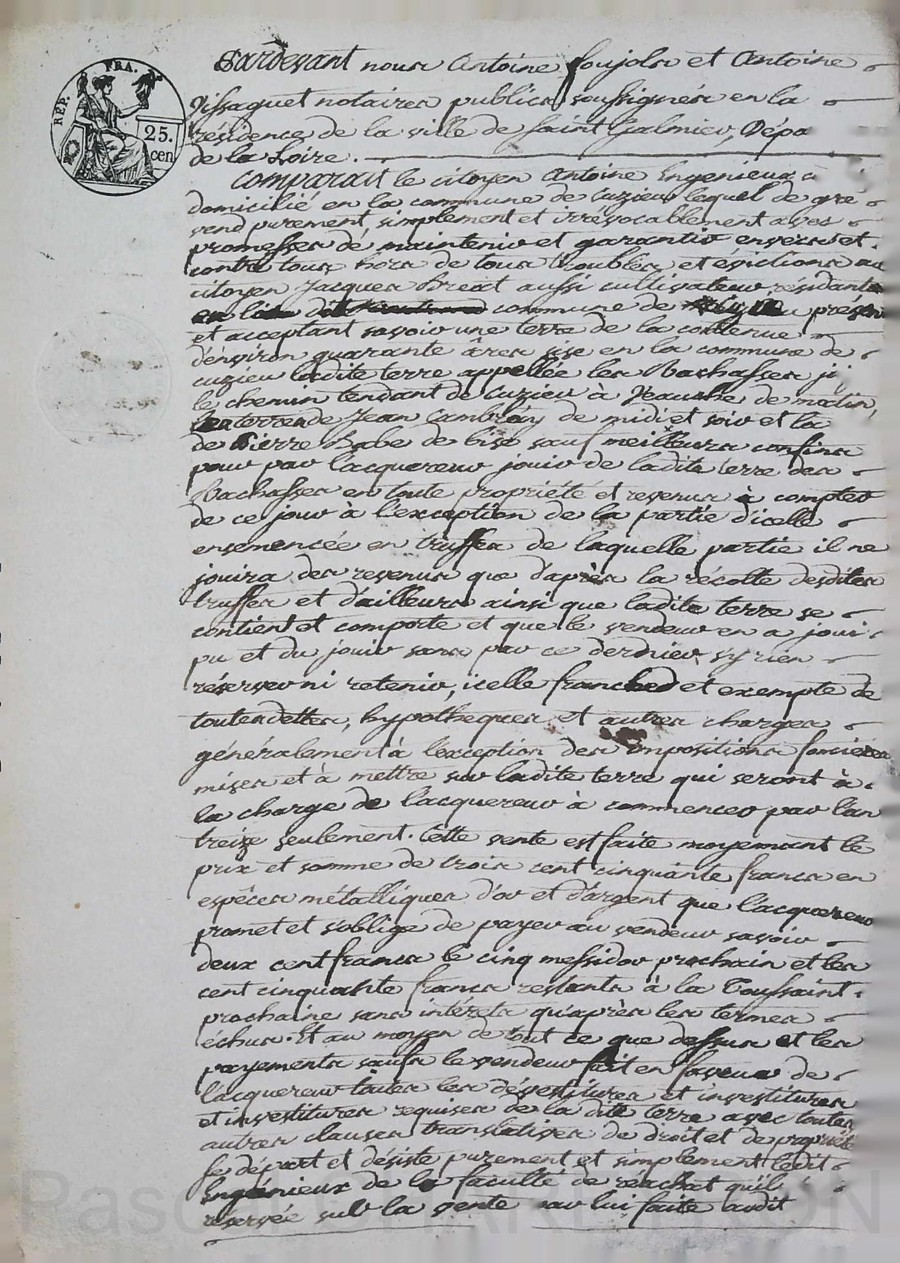 REP. FRA.
25.
cen
Pardevant nous Antoine foujols et Antoine
Tissaguet notaires publics soussignés en la
résidence de la ville de Saint Galmier, Dépa
de la Loire.
Comparait le citoyen Antoine Ingenieux
domicilié en la commune de cuzieu lequel de gré
vend purement, simplement et irrévocablement avec
promesses de maintenir et garantir envers et
contre tous hors de tous troubles et évictions au
citoyen Jacques Breat aussi cultivateur résidant
commune de présent
et acceptant savoir une terre de la contenue
d'environ quarante âres sise en la commune de
cuzieu ladite terre appellée les Rachasses
le chemin tendant de Cuzieu à de matin,
terre de Jean de midi et soir et la
de Pierre Babe de bise sauf meilleurs confins
pour par l'acquereur jouir de ladite terre des
Rachasses en toute propriété et revenus à compter
de ce jour à l'exception de la partie d'icelle
ensemencée en truffes de laquelle partie il ne
jouira des revenus que d'après la récolte desdites
truffes et d'ailleurs ainsi que ladite terre se
contient et comporte et que le vendeur en a joui
pu et du jouir sans par ce dernier s'y rien
réserver ni retenir, icelle franche et exempte de
toutes dettes, hypotheques et autres charges
généralement à l'exception des impositions foncières
mises et à mettre sur ladite terre qui seront à
la charge de l'acquereur à commencer par l'an
treize seulement. Cette vente est faite moyennant le
prix et somme de trois cent cinquante francs en
espèces métalliques d'or et d'argent que l'acquereur
promet et s'oblige de payer au vendeur savoir
deux cent francs le cinq messidor prochain et les
cent cinquante francs restants à la Toussaint
prochaine sans intérets qu'après les termes
échus. Et au moyen de tout ce que dessus et les
payements saufs le vendeur fait en faveur de
l'acquereur toutes les dévestitures et investitures
et investitures requises de la dite terre avec toutes
autres clauses translatives de droit et de propriété
se départ et désiste purement et simplement ledit
Ingénieux de la faculté de reachat qu'il
reservée sur la vente par lui faite audit